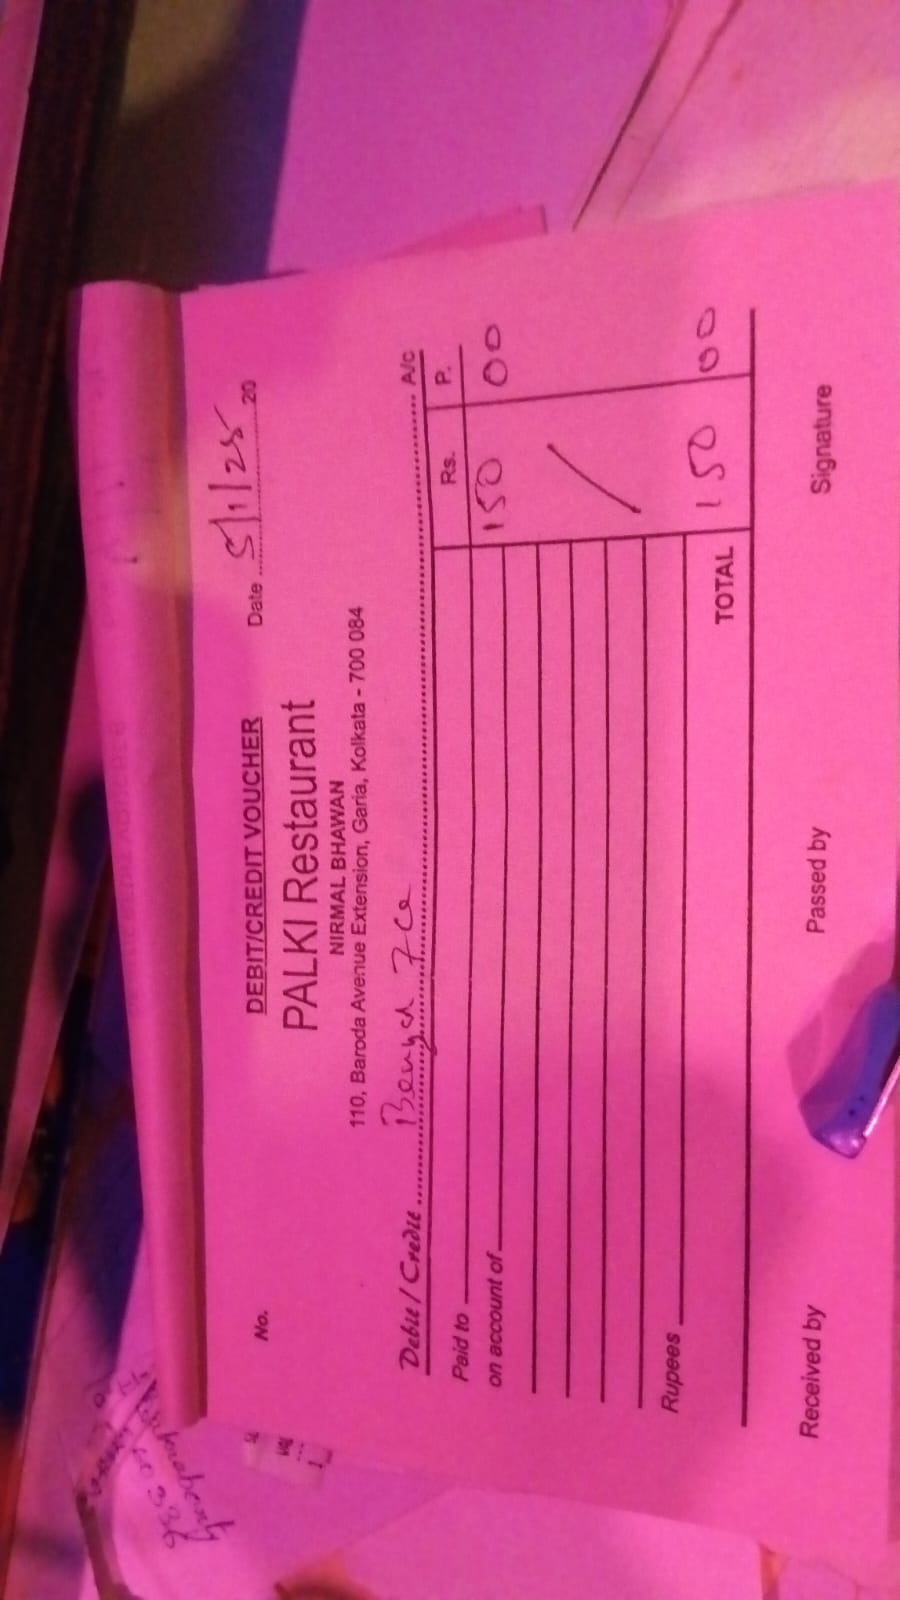 DEBIT/CREDIT VOUCHER
No.
Date 5/1/25 20
PALKI Restaurant
NIRMAL BHAWAN
110, Baroda Avenue Extension, Garia, Kolkata - 700 084
Debit / Credit A/c
Rs. P.
Paid to 150 00
on account of
Rupees
TOTAL 150 00
Received by Passed by Signature